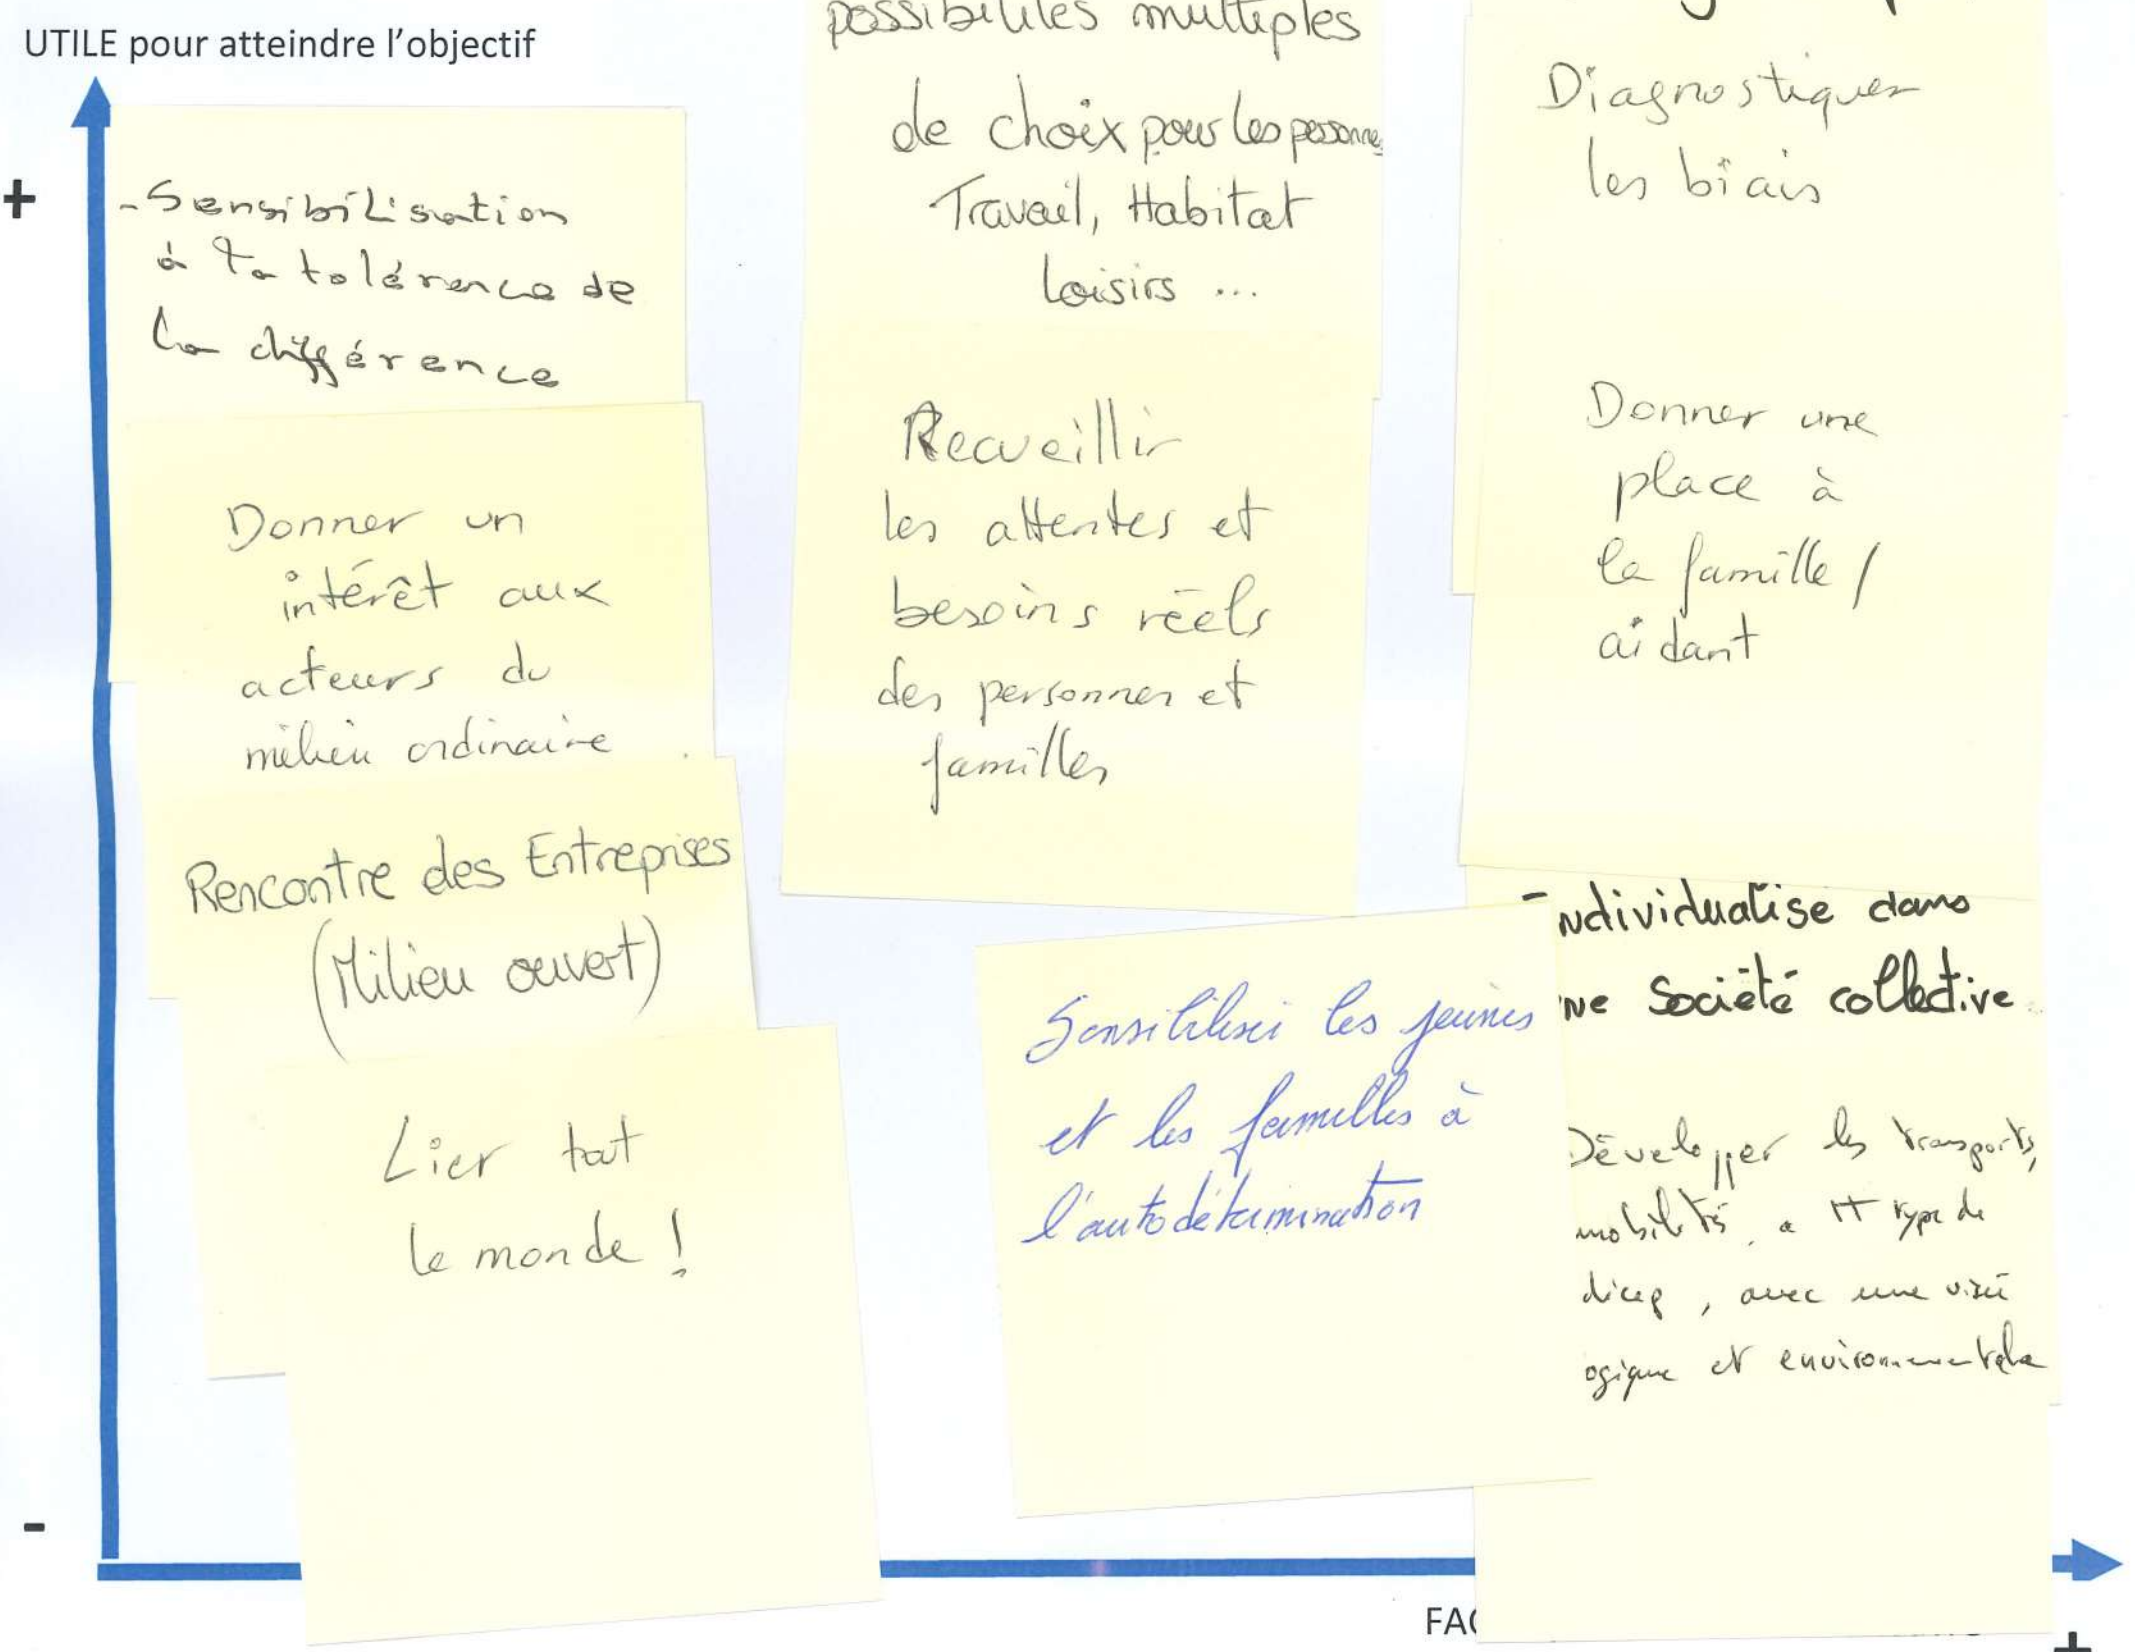 UTILE pour atteindre l'objectif
+
-
- Sensibilisation
à la tolérence de
la différence
Donner un
intérêt aux
acteurs du
milieu ordinaire
Rencontre des Entreprises
(Milieu ouvert)
Lier tout
le monde !
possibilités multiples
de choix pour les personne
Travail, Habitat
Loisirs ...
Recueillir
les attentes et
besoins réels
des personnes et
familles
Sensibiliser les jeunes
et les familles à
l'autodétermination
Diagnostiquer
les biais
Donner une
place à
la famille /
aidant
ndividualise dans
ne Société collective
Développer les transports,
mobilités, a tt type de
dicap, avec une visé
ogique et environnementale
FAC
+